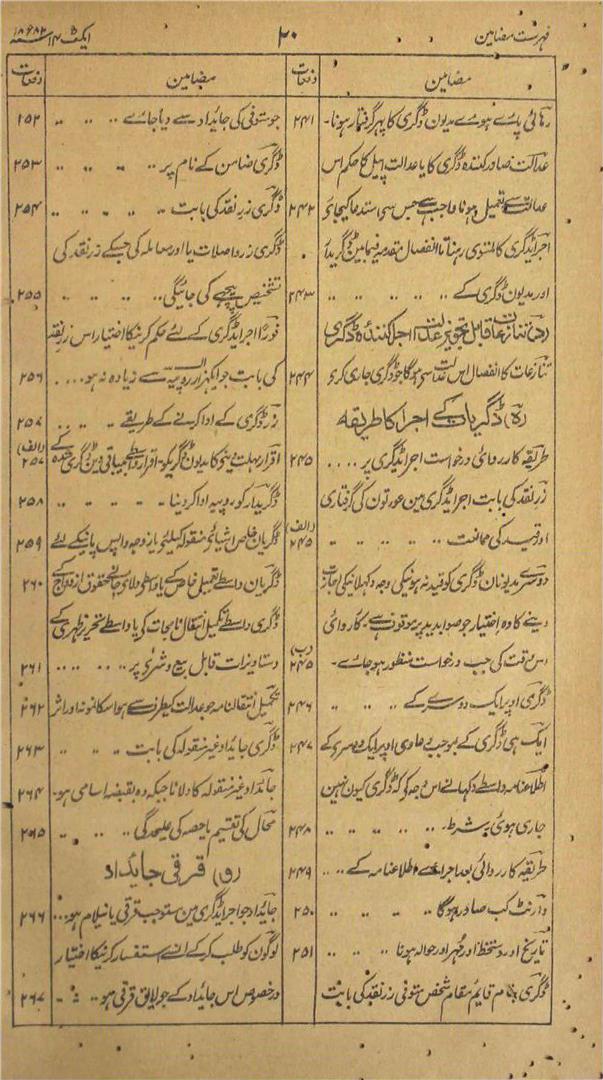 فہرست مضامین ۲۰ ایکٹ ۱۴ سنہ ۱۸۸۲ء
مضامین دفعات
رہائی پائے ہوئے مدیون ڈگری کا پھر گرفتار ہونا۔ ۲۴۱
عدالت صادر کنندہ ڈگری کا یا عدالت اپیل کا حکم اس
عدالت سے تعمیل ہونا واجب ہے جس سے استدعا کیجائے ۲۴۲
اجراے ڈگری کا ملتوی رہنا تا انفصال مقدمہ فیمابین ڈگریدار
اور مدیون ڈگری کے ۲۴۳
(د) تنازعات قابل تجویز عدالت اجرا کنندہ ڈگری
تنازعات کا انفصال اس عدالت سے ہوگا جو ڈگری جاری کرے ۲۴۴
(ہ) ڈگریات کے اجرا کا طریقہ
طریقہ کارروائی درخواست اجراے ڈگری پر .... ۲۴۵
زر نقد کی بابت اجراے ڈگری مین عورتون کی گرفتاری
اور قید کی ممانعت (الف) ۲۴۵
دوسرے مدیونان ڈگری کو قید نہ ہونیکی وجہ دکھلانیکی اجازت
دینے کا وہ اختیار جو صوابدید پر موقوف ہے۔ کارروائی
اس وقت کی جب درخواست منظور ہو جاے۔ (ب) ۲۴۵
ڈگری اوپر ایک دوسرے کے ۲۴۶
ایک ہی ڈگری کے بموجب دعاوی اوپر ایک دوسرے کے ۲۴۷
اطلاعنامہ واسطے دکھانے اس وجہ کو کہ ڈگری کیون نہین
جاری ہوئی۔ شرط۔ ۲۴۸
طریقہ کارروائی بعد اجراے اطلاعنامہ کے .. ۲۴۹
وارنٹ کب صادر ہوگا ۲۵۰
تاریخ اور دستخط اور مہر اور حوالہ ہونا ۲۵۱
ڈگری بنام قایم مقام شخص متوفی زر نقد کی بابت
مضامین دفعات
جو متوفی کی جائداد سے دیا جاے .. ۲۵۲
ڈگری ضامن کے نام پر .. ۲۵۳
ڈگری زر نقد کی بابت .. ۲۵۴
ڈگری زر واصلات یا اور معاملہ کی جسکے زر نقد کی
تشخیص پیچھے کی جائیگی .. ۲۵۵
فوراً اجراے ڈگری کے لئے حکم کرنیکا اختیار اس زر نقد
کی بابت جو ایکہزار روپیہ سے زیادہ نہ ہو .... ۲۵۶
زر ڈگری کے ادا کرنے کے طریقے .. ۲۵۷
اقرار مہلت دینیکا مدیون ڈگری کو۔ اقرار واسطے بیباقی دین ڈگری شدہ کے (الف) ۲۵۷
ڈگریدار کو روپیہ ادا کر دینا - ۲۵۸
ڈگریان خاص اشیائے منقولہ کیلئے یا زوجہ واپس پانیکے لئے ۲۵۹
ڈگریان واسطے تعمیل خاص کے یا واسطے دلائے جانے حقوق ازدواج کے ۲۶۰
ڈگری واسطے تکمیل انتقال نامجات کی یا واسطے تحریر ظہری کے
دستاویزات قابل بیع و شرے پر ۲۶۱
تکمیل انتقالنامہ جو عدالت کیطرف سے ہو اسکا نمونہ اور اثر ۲۶۲
ڈگری جائداد غیر منقولہ کی بابت .. ۲۶۳
جائداد غیر منقولہ کا دلانا جبکہ وہ بقبضہ اسامی ہو۔ ۲۶۴
محال کی تقسیم یا حصہ کی علیحدگی .. ۲۶۵
(و) قرقی جایداد
جایداد جو اجراے ڈگری مین مستوجب قرقی یا نیلام ہو... ۲۶۶
لوگون کو طلب کر کے اُنسے استفسار کرنیکا اختیار
درخصوص اس جایداد کے جو لایق قرقی ہو .. ۲۶۷